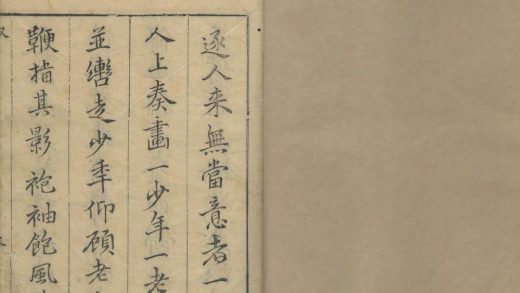 逐人来無當意者一
人上奏畫一少年一老
並轡走少年仰顧老
鞭指其影袍袖飽風